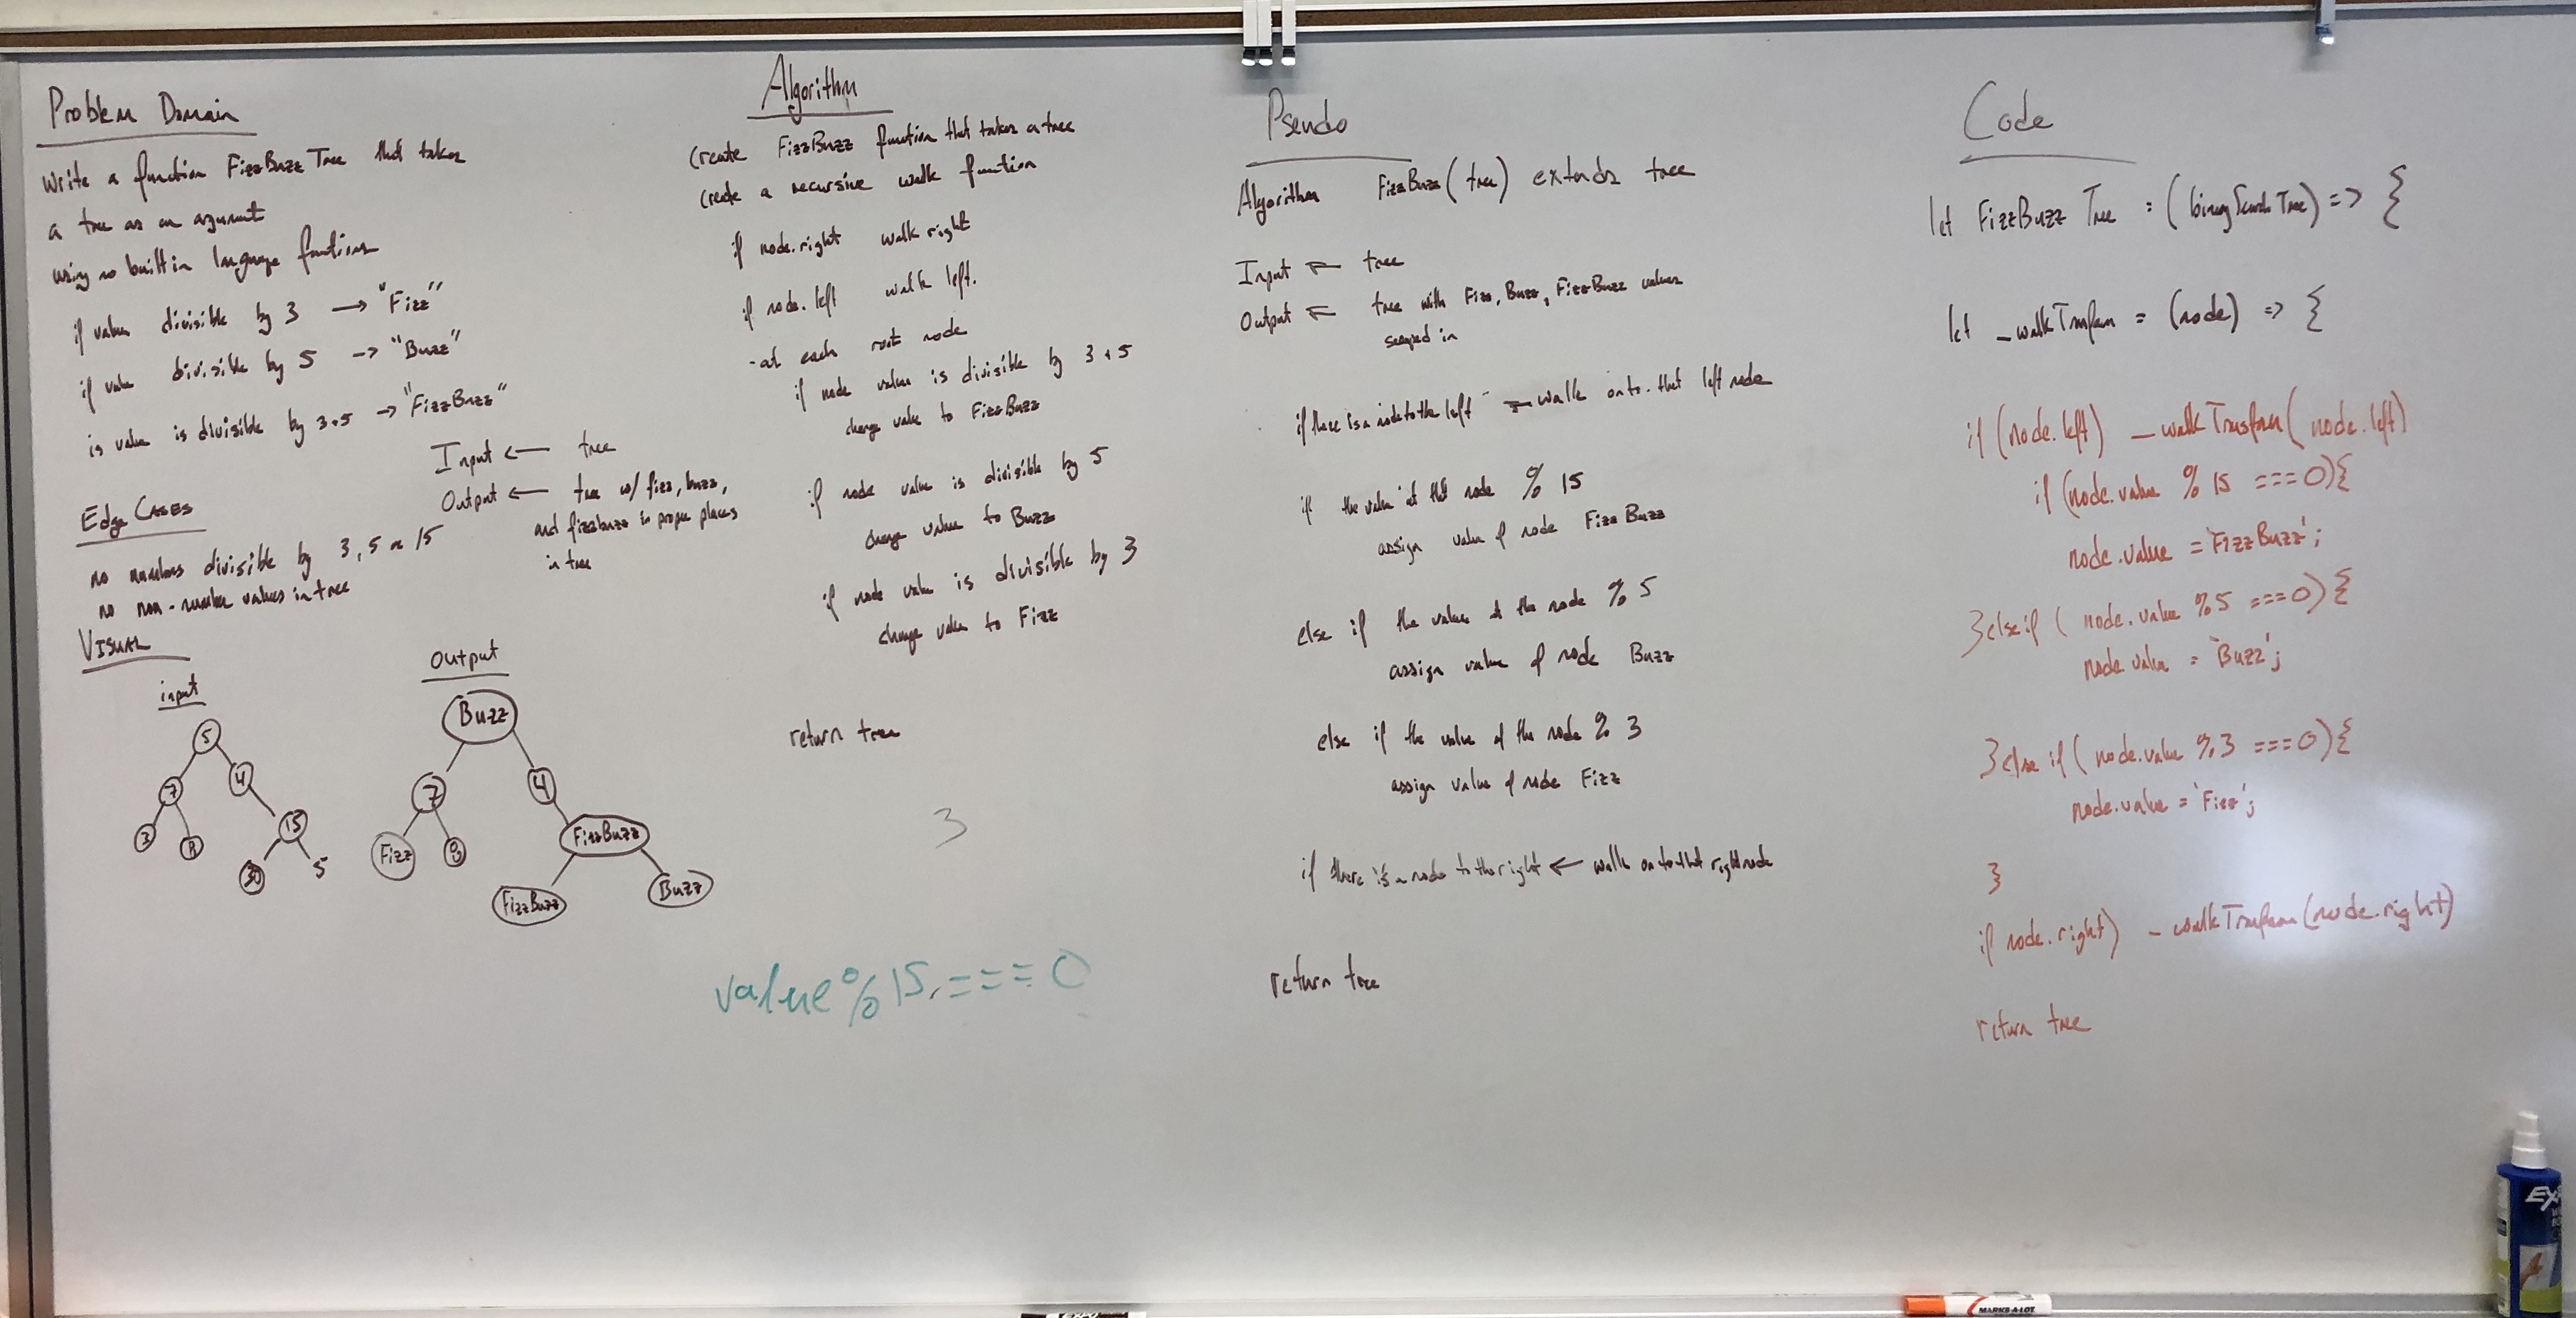 Problem Domain
Write a function FizzBuzz Tree that takes
a tree as an argument
using no built in language functions
if value divisible by 3 → "Fizz"
if value divisible by 5 → "Buzz"
is value is divisible by 3+5 → "FizzBuzz"
Input ← tree
Output ← tree w/ fizz, buzz,
and fizzbuzz in proper places
in tree
Edge Cases
no numbers divisible by 3, 5 or 15
no non-number values in tree
Visual
input
5
7 4
3 8 15
30 5
output
Buzz
7 4
Fizz 8 FizzBuzz
FizzBuzz Buzz
Algorithm
Create FizzBuzz function that takes a tree
create a recursive walk function
if node.right walk right
if node.left walk left.
- at each root node
if node value is divisible by 3 + 5
change value to FizzBuzz
if node value is divisible by 5
change value to Buzz
if node value is divisible by 3
change value to Fizz
return tree
3
value % 15 === 0
Pseudo
Algorithm FizzBuzz(tree) extends tree
Input ← tree
Output ← tree with Fizz, Buzz, FizzBuzz values
in
if there is a node to the left ← walk onto that left node
if the value at that node % 15
assign value of node FizzBuzz
else if the value at the node % 5
assign value of node Buzz
else if the value of the node % 3
assign value of node Fizz
if there is a node to the right ← walk on to that right node
return tree
Code
let FizzBuzz Tree = (binarySearchTree) => {
let _walkTransform = (node) => {
if (node.left) _walkTransform( node.left)
if (node.value % 15 === 0){
node.value = 'FizzBuzz';
}else if ( node.value % 5 === 0) {
node value = 'Buzz';
}else if ( node.value % 3 === 0) {
node.value = 'Fizz';
}
if node.right) _walkTransform(node.right)
return tree
MARKS-A-LOT
EX